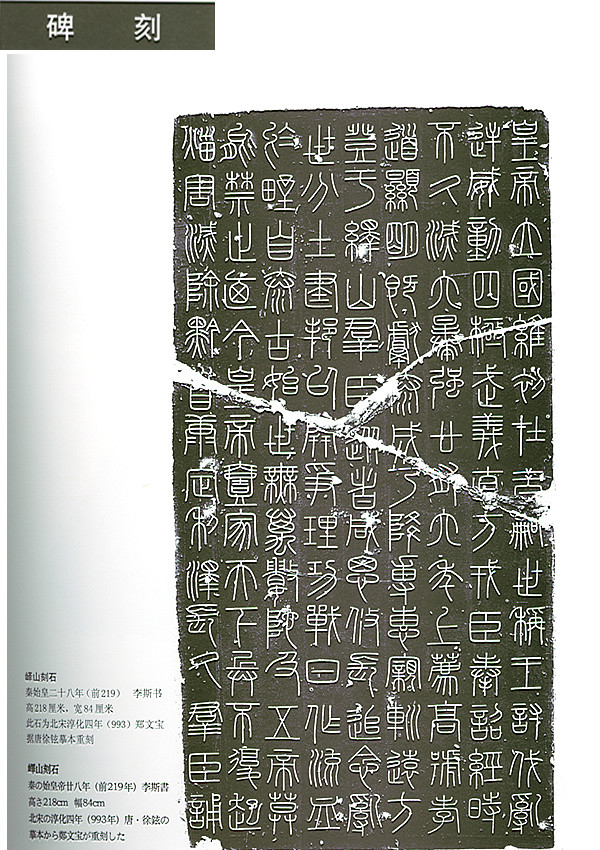 碑 刻
皇帝立國維初在昔嗣世稱王討伐亂
逆威動四極武義直方戎臣奉詔經時
不久滅六暴強廿有六年上薦高號孝
道顯明既獻泰成乃降專惠親巡遠方
登于繹山群臣從者咸思攸長追念亂
世分土建邦以開爭理功戰日作流血
於野自泰古始世無萬數陀及五帝莫
能禁止廼今皇帝壹家天下兵不復起
災害滅除黔首康定利澤長久群臣誦
峄山刻石
秦始皇二十八年（前219） 李斯书
高218厘米，宽84厘米
此石为北宋淳化四年（993）郑文宝
据唐徐铉摹本重刻
嶧山刻石
秦の始皇帝廿八年（前219年）李斯書
高さ218cm 幅84cm
北宋の淳化四年（993年）唐・徐鉉の
摹本から鄭文宝が重刻した